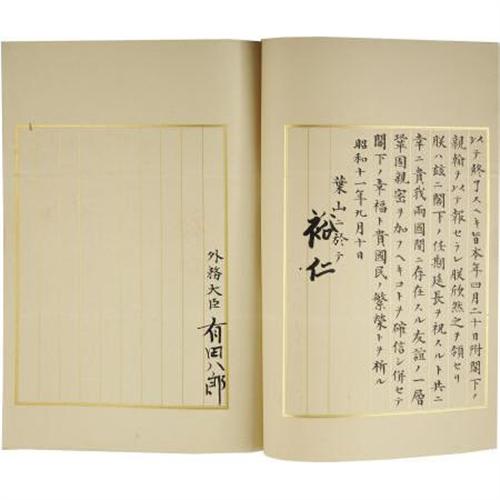 以テ終了スヘキ旨本年四月二十日附閣下ノ
親翰ヲ以テ報セラレ朕欣然之ヲ領セリ
朕ハ玆ニ閣下ノ任期延長ヲ祝スルト共ニ
幸ニ貴我兩國間ニ存在スル友誼ノ一層
鞏固親密ヲ加フヘキコトヲ確信シ併セテ
閣下ノ幸福ト貴國民ノ繁榮トヲ祈ル
昭和十一年九月十日
葉山ニ於テ
裕仁
外務大臣 有田八郎